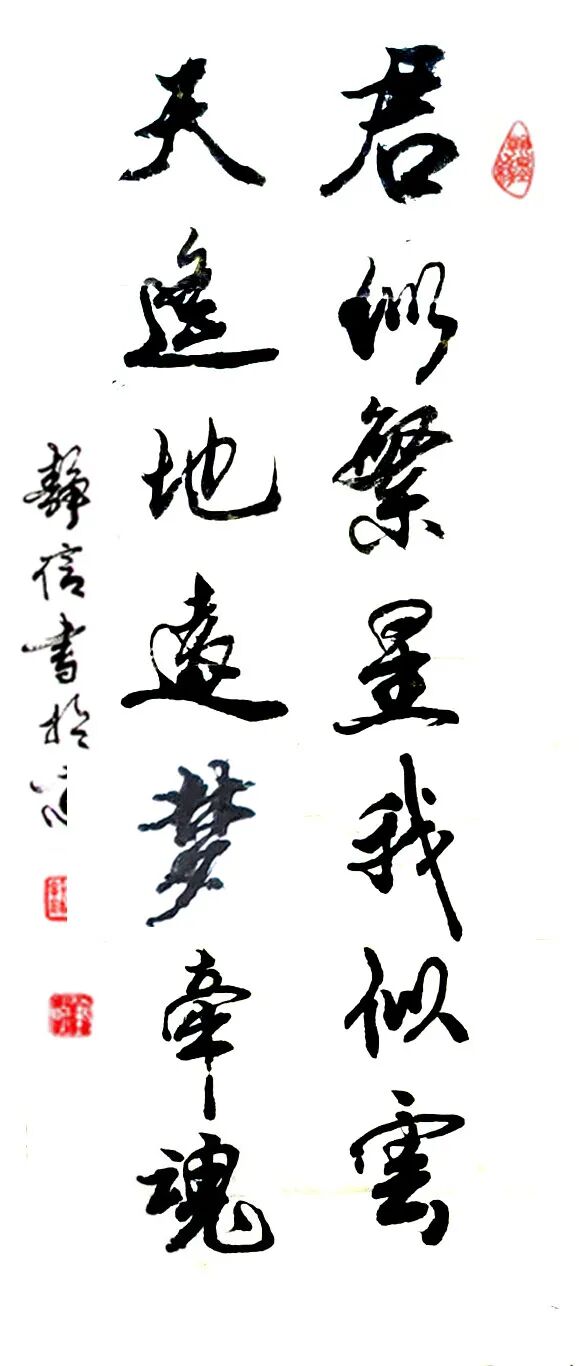 君似繁星我似雲
天遙地遠夢牽魂
靜信書於